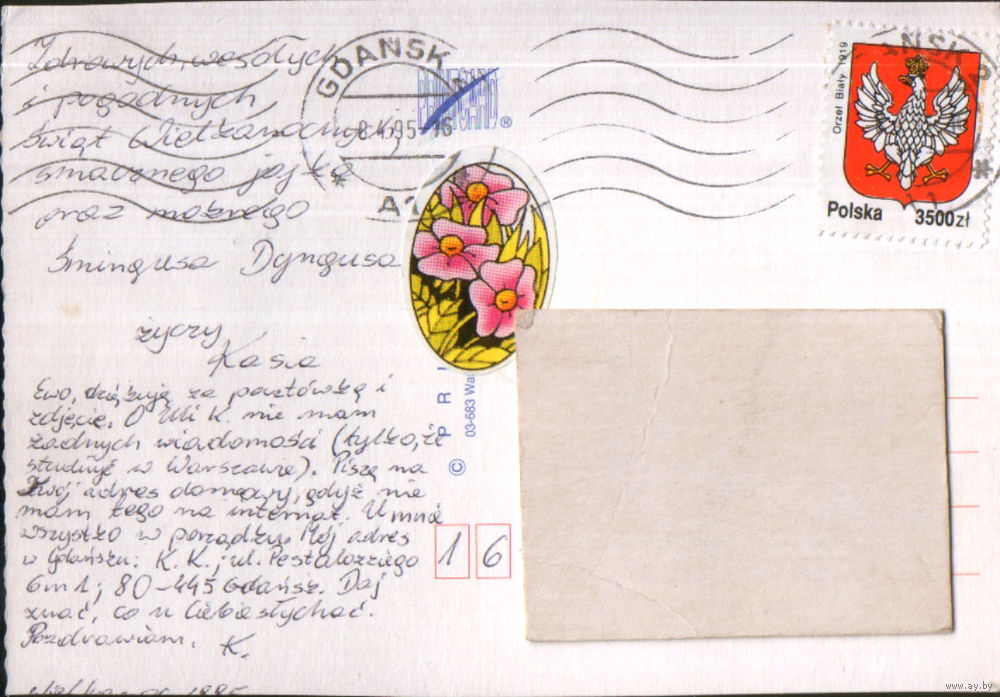 Zdrowych, wesołych
i pogodnych
Świąt Wielkanocnych,
smacznego jajka
oraz mokrego
Śmingusa Dyngusa
życzy
Kasia
Ewo, dziękuję za pocztówkę i
zdjęcie. O Uli K. nie mam
żadnych wiadomości (tylko, że
studiuje w Warszawie). Piszę na
Twój adres domowy, gdyż nie
mam tego na internat. U mnie
wszystko w porządku. Mój adres
w Gdańsku: K. K.; ul. Pestalozziego
6m1; 80-445 Gdańsk. Daj
znać, co u Ciebie słychać.
Pozdrawiam. K.
1995
GDAŃSK
8.4.95-16
A1
*
®
Orzeł Biały 1919
Polska 3500zł
*
© P R I
03-683 Wa
1 6
www.ay.by